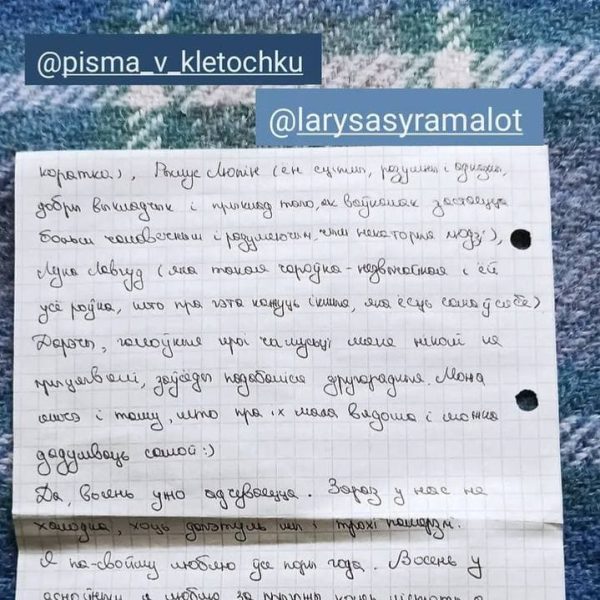 @pisma_v_kletochku
@larysasyramalot
коратка), Рымус Люпін (ён сціплы, разумны і адважны,
добры выкладчык і прыклад таго, як ваўкалак застаецца
больш чалавечным і разумеючым, чым некаторыя людзі),
Луна Лавгуд (яна такая чароўна-незвычайная і ёй
усё роўна, што пра гэта кажуць іншыя, яна ёсць сама ў сабе)
Дарэчы, галоўныя героі чамусьці мяне ніколі не
прыцягвалі, заўсёды падабаліся другарадныя. Мона
яшчэ і таму, што пра іх мала вядома і можна
дадумваць самой :)
Да, восень ужо адчуваецца. Зараз у нас не
холодна, хоць дагэтуль мы і трохі памерзлі.
Я па-свойму люблю ўсе поры года. Восень у
асноўным я люблю за